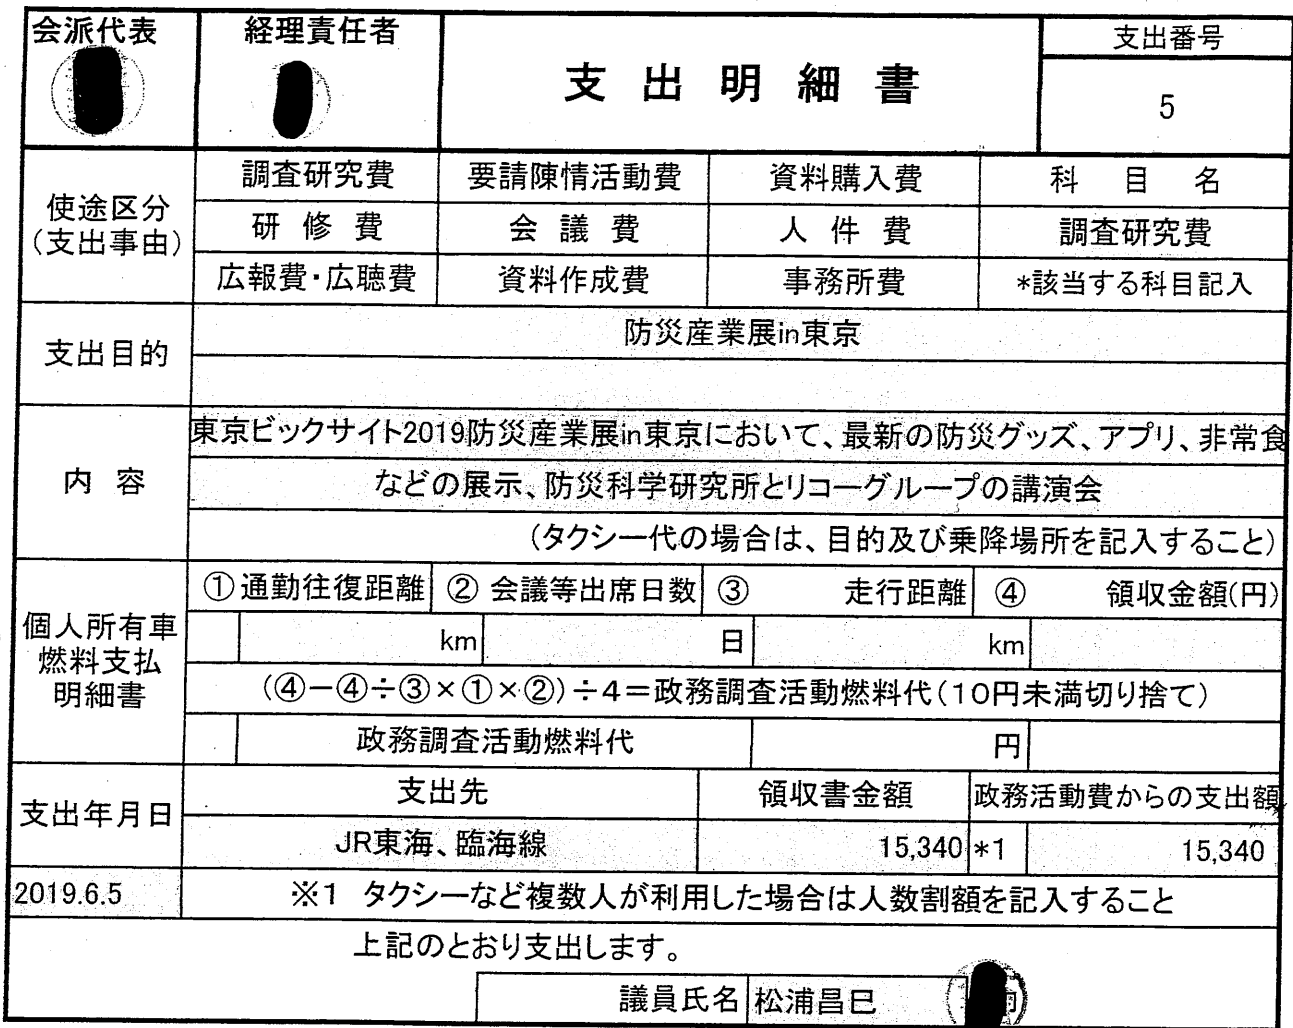 会派代表
経理責任者
支出明細書
支出番号
5
使途区分
(支出事由)
調査研究費
要請陳情活動費
資料購入費
科目名
研修費
会議費
人件費
調査研究費
広報費・広聴費
資料作成費
事務所費
*該当する科目記入
支出目的
防災産業展in東京
内容
東京ビックサイト2019防災産業展in東京において、最新の防災グッズ、アプリ、非常食
などの展示、防災科学研究所とリコーグループの講演会
(タクシー代の場合は、目的及び乗降場所を記入すること)
個人所有車
燃料支払
明細書
①通勤往復距離
②会議等出席日数
③走行距離
④領収金額(円)
km
日
km
(④-④÷③×①×②)÷4=政務調査活動燃料代(10円未満切り捨て)
政務調査活動燃料代
円
支出年月日
支出先
領収書金額
政務活動費からの支出額
JR東海、臨海線
15,340
*1
15,340
2019.6.5
※1 タクシーなど複数人が利用した場合は人数割額を記入すること
上記のとおり支出します。
議員氏名
松浦昌巳